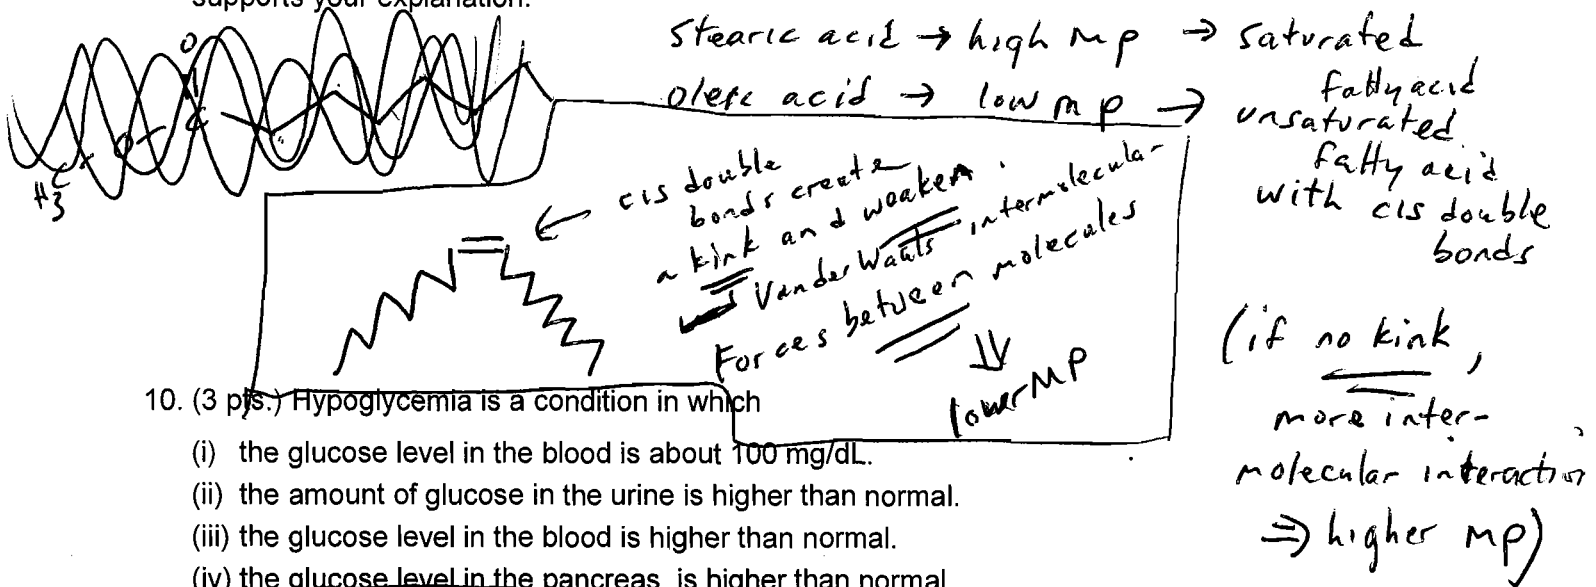 supports your explanation.
stearic acid → high MP → saturated
fatty acid
oleic acid → low MP → unsaturated
fatty acid
with cis double
bonds
O
||
H3C-O-C
← cis double
bonds create
a kink and weaken
Van der Waals intermolecular
Forces between molecules
⇓
lower MP
(if no kink,
more inter-
molecular interaction
⇒ higher MP)
10. (3 pts.) Hypoglycemia is a condition in which
(i) the glucose level in the blood is about 100 mg/dL.
(ii) the amount of glucose in the urine is higher than normal.
(iii) the glucose level in the blood is higher than normal.
(iv) the glucose level in the pancreas is higher than normal